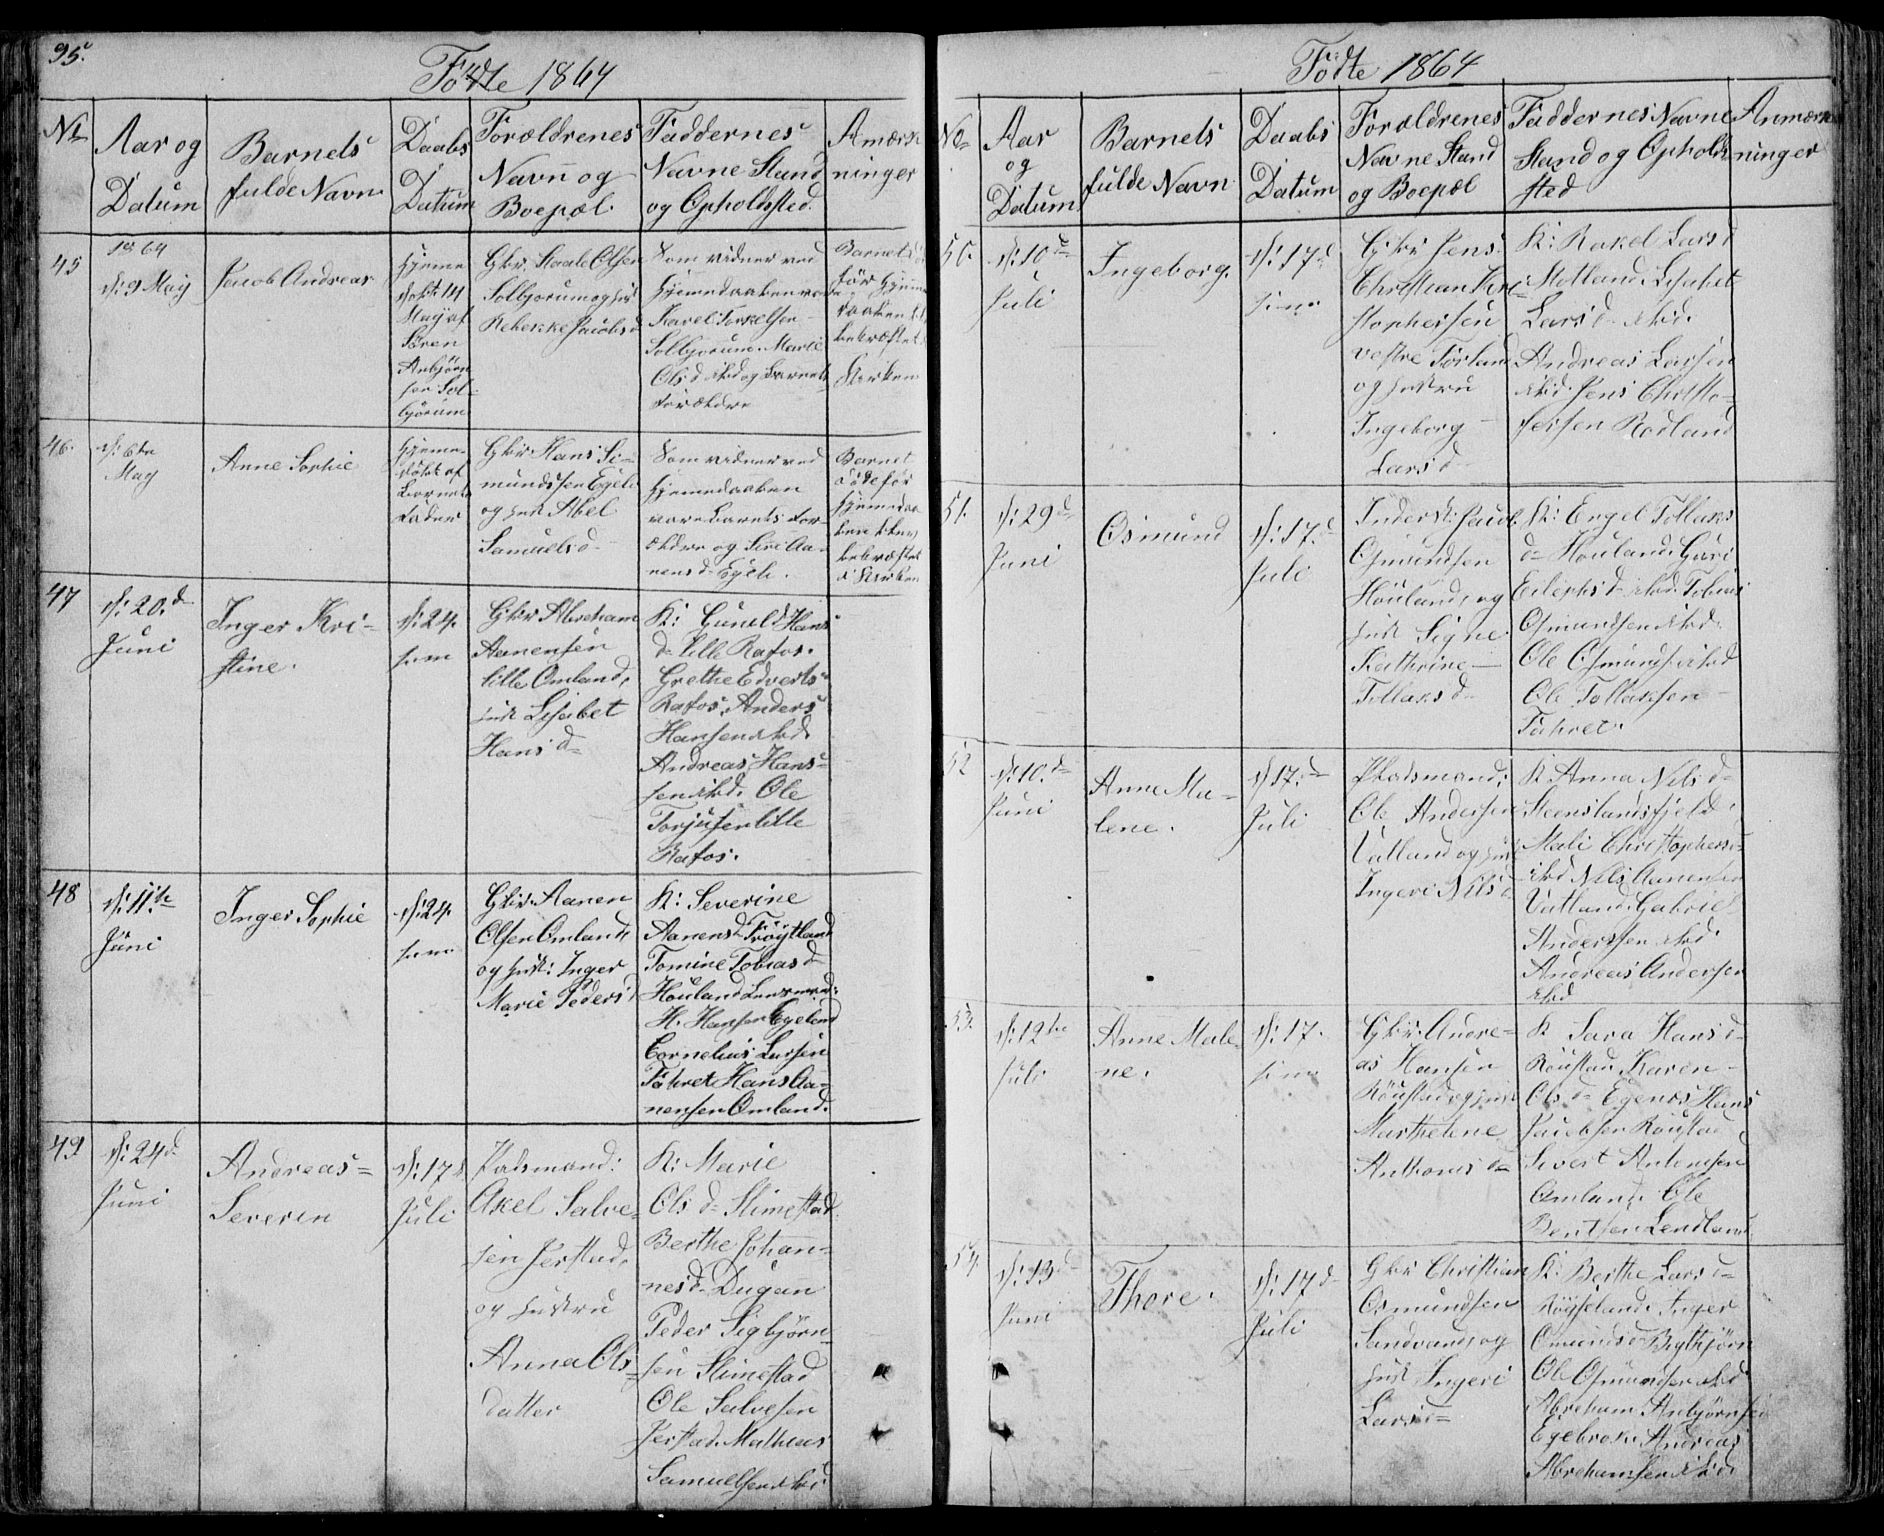 95.
Födte 1864
No
Aar og
Datum
Barnets
fulde Navn
Daabs
Datum
Forældrenes
Navn og
Boepæl.
Faddernes
Navne Stand
og Opholdssted.
Anmærk
ninger
45
1864
d: 9 May
Jacob Andreas
hjeme
döbt 14
May af
Sören
Anbjörn
sen Sol-
björum
Gbr: Staale Olsen
Solbjorum og hust
Rebekke Jacobsd
Som vidner ved
hjemedaaben vare
Karel Torkelsen
Solbjorum. Marie
Olsd ibd og barnets
forældre
Barnet
för hjemme
daaben
bekræftet
Kirken
46.
d: 6te
May
Anne Sophie
hjeme-
döbt af
Barnets
Fader
Gbr Hans Si-
mundssen Egeli
og hust Abel
Samuelsd
Som vidner ved
hjemedaaben
vare Barnets for-
ældre og Siri Aa-
nensd Egeli.
Barnet
döde för
hjemmedaa
ben blev
bekræftet
i Kirken
47
d: 20.d
Juni
Inger Kri-
stine.
d: 24.
sam
Gbr Abraham
Aanensen
lille Omland,
hust Lisabet
Hansd
K: Gunild Hans
d Lille Rafos.
Grethe Edverts
Rafos, Anders
Hansen ibd.
Andreas Hans-
sen ibd. Ole
Torjusen lille
Rafos.
48
d: 11.te
Juni
Inger Sophie
d: 24.
sam
Gbr: Aanen
Olsen Omland,
og hust: Inger
Marie Pedersd
K: Severine
Aanensd Fröytland
Tomine Tobiasd
Houland Lensmand:
H. Hansen Egeland
Cornelius Larsen
Föhret Hans Aa-
nensen Omland.
49
d: 24d
Juni
Andreas-
Severin
d: 17d
Juli
Pladsmand:
Axel Salve-
sen Jerstad,
og hustru
Anna Ols
datter
K: Marie
Olsd Slimestad
Berthe Johan-
nesd. Dugan
Peder Sigbjørn-
sen Slimestad
Ole Salvesen
Jerstad. Mathias
Samuelsen ibd
Födte 1864
No
Aar
og
Datum
Barnets
fulde Navn
Daabs
Datum
Forældrenes
Navne Stand
og Boepæl
Faddernes Navne
Stand og Ophold
sted
Anmærk
ninger
50.
d: 10d
Juli
Ingeborg.
d: 17d
sam
Gbr Jens
Christian Kri-
stophersen
vestre Förland
og hustru
Ingeborg
Larsd
K: Rakel Larsd
Motland, Lisabet
Larsd ibd.
Andreas Larsen
ibd. Jens Christo-
fersen Rödland
51.
d: 29d
Juni
Osmund
d: 17.d
Juli
Inders: Jacob
Osmundsen
Houland, og
hust Signe
Kathrine
Tollaksd
K: Engel Tollaks
d Houland. Guri
Eilertsd ibd. Tobias
Osmundsen ibd.
Ole Osmundsen ibd
Ole Tollaksen
Föhret.
52
d: 10.d
Juni
Anne Ma-
lene.
d 17.d
Juli
Pladsmand:
Ole Andersen
Vatland og hust
Ingeri Nilsd
K: Anna Nilsd
Steenslandsfjeld,
Mali Christophersd
ibd Nils Aanensen
Vatland. Gabriel
Anderssen ibd.
Andreas Andersen
ibd
53.
d: 12te
Juli
Anne Male-
ne.
d: 17.
sam
Gbr: Andre-
as Hansen
Röustad og hust
Marthe Lene
Anthonisd
K Sara Hansd
Röustad, Karen
Olsd Egenes Hans
Jacobsen Röustad
Sivert Antonsen
Omland, Ole
Bentsen Lendland
54.
d: 13d
Juni
Thore.
d: 17d
Juli
Gbr Christian
Osmundsen
Sandvand, og
hust Ingeri
Larsd
K: Berthe Larsd
Röyseland. Inger
Omundsd
Ole Osmundsen ibd
Abraham Anbjörnsen
Egebrok. Andreas
Abrahamsen ibd